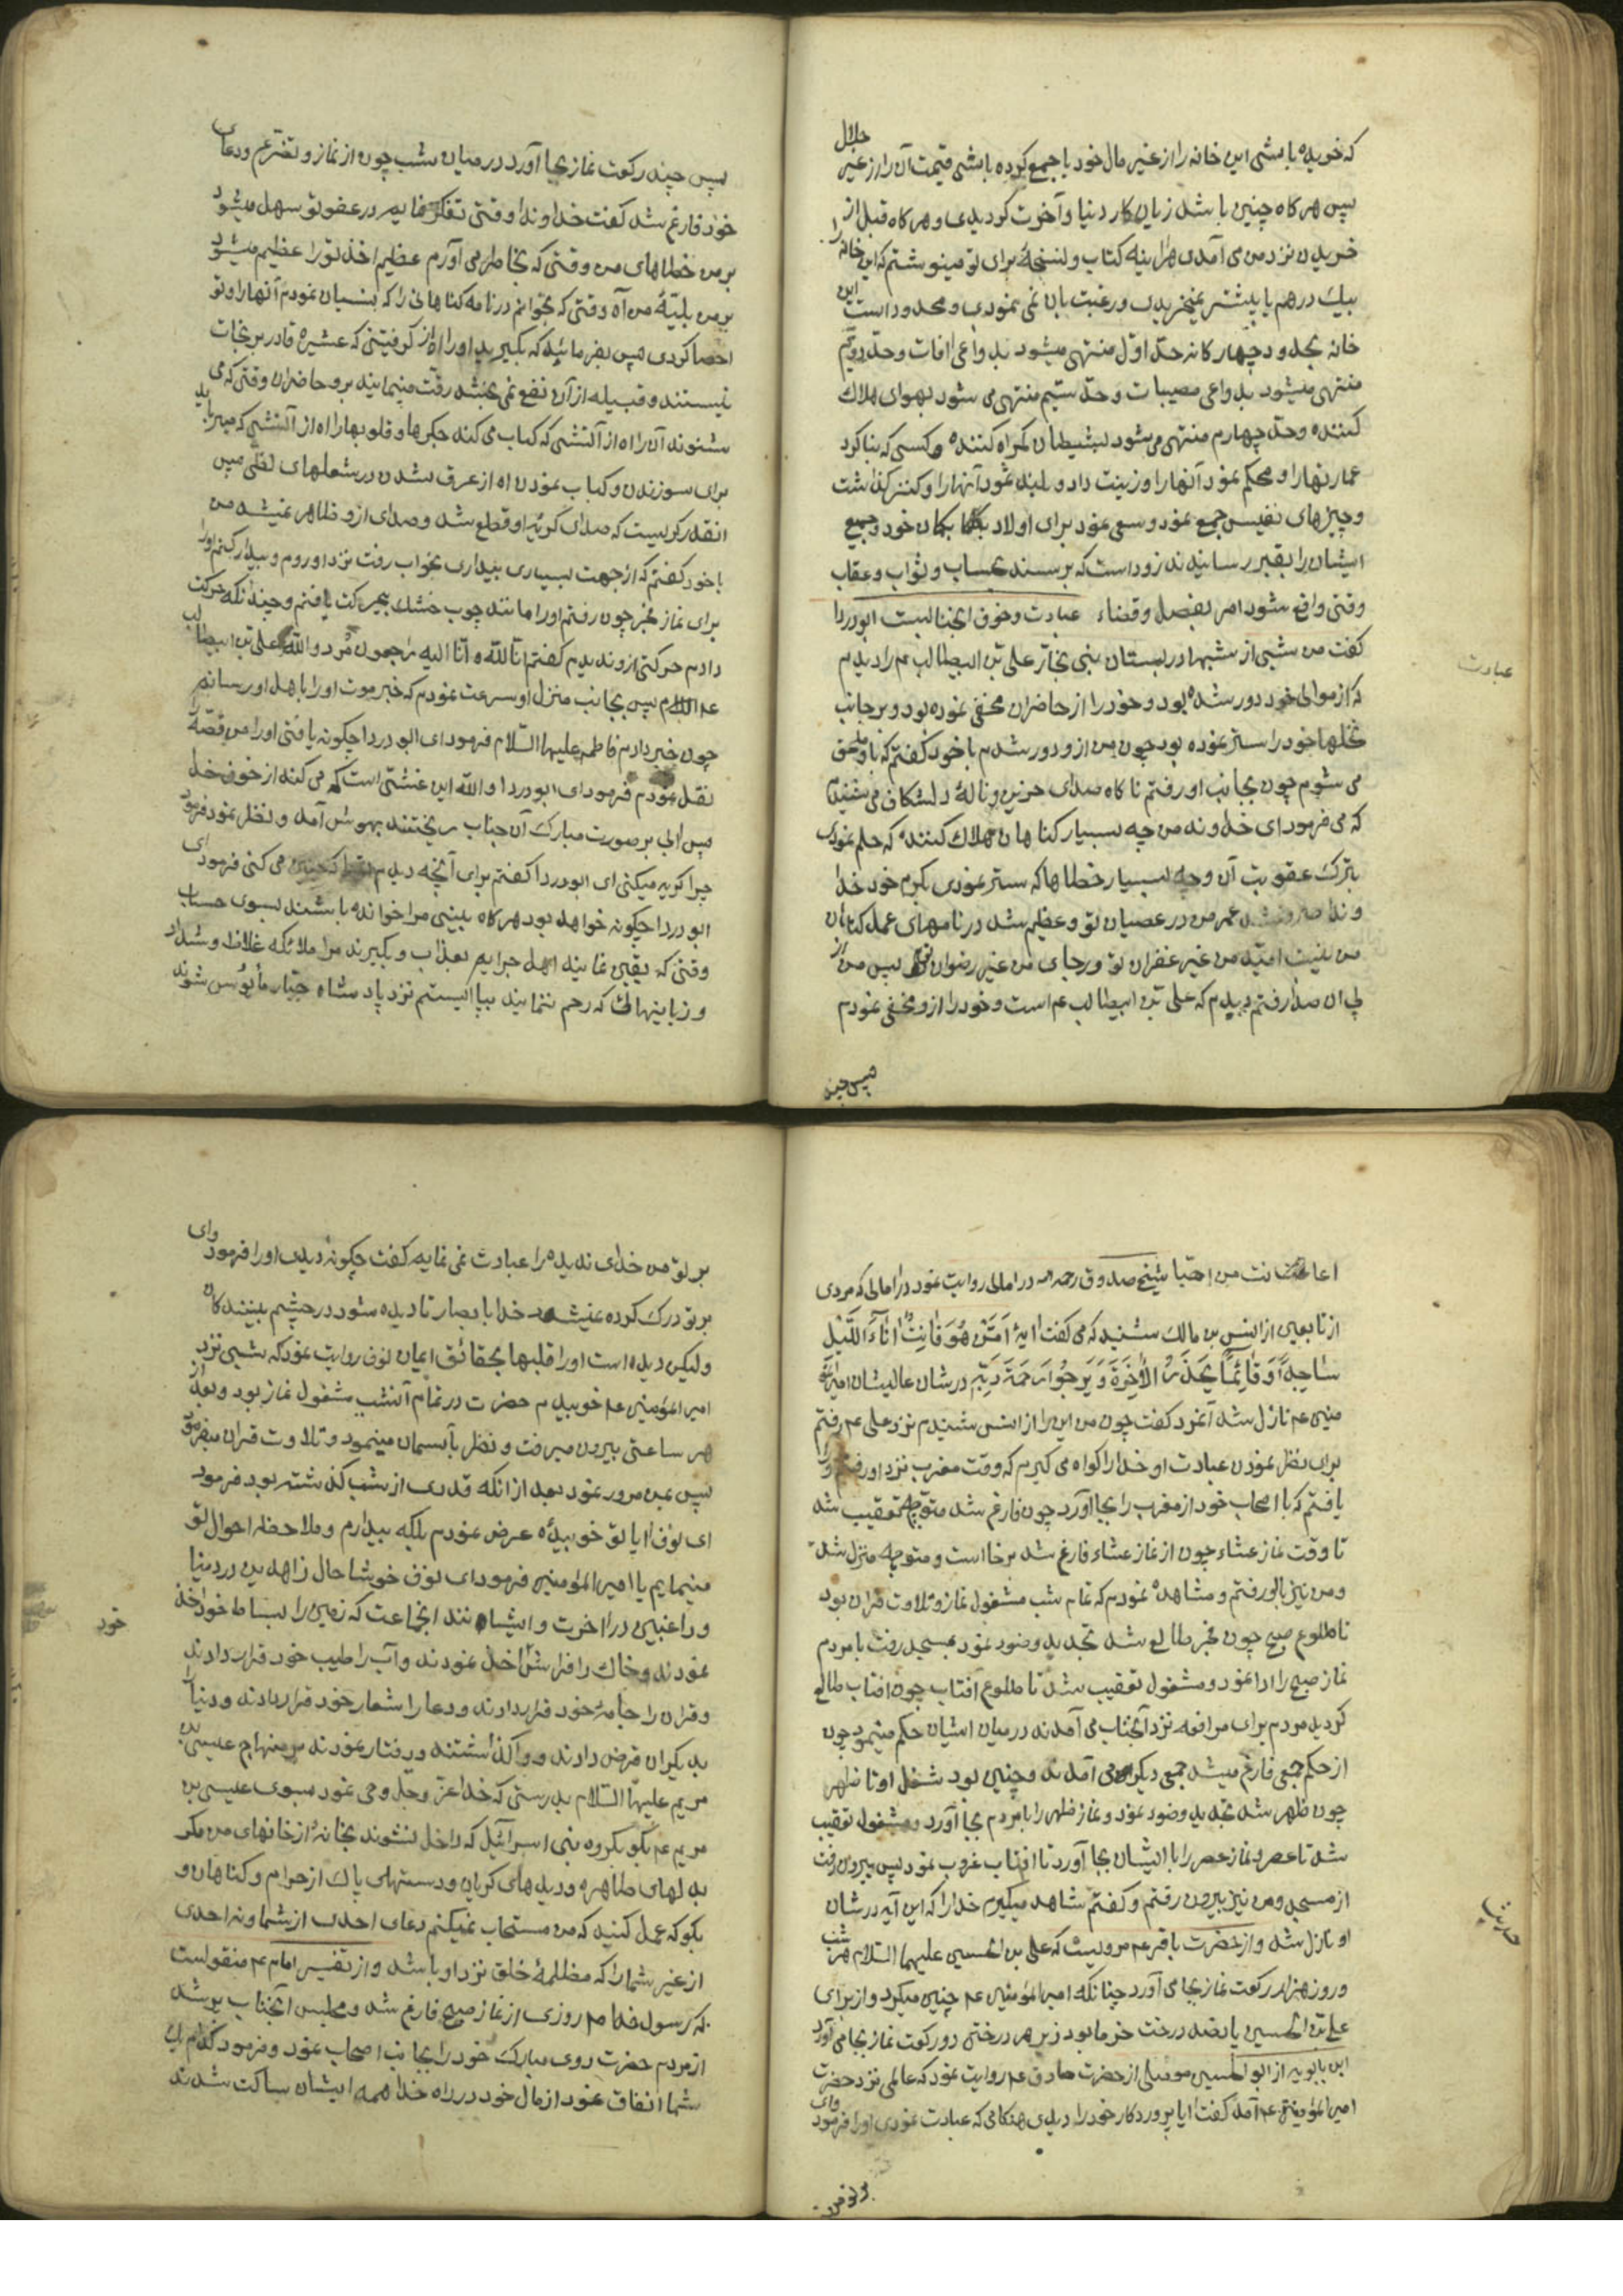 که خریده باشی این خانه را از غیر مال خود یا جمع کرده باشی قیمت آن را از غیر حلال
پس هر کاه چنین باشد زیان کار دنیا و آخرت کردیدی و هر کاه قبل از
خریدن نزد من می آمدی هر اینه کتاب و نسخهٔ برای تو مینوشتم که این خانه را
بیک درهم یا بیشتر نمیخریدی و رغبت بان نمی نمودی و محدود است این
خانه بحدود چهار کانه حدّ اوّل منتهی میشود بدواعی افات و حدّ دویّم
منتهی میشود بدواعی مصیبات و حدّ سیّم منتهی می شود بهوای هلاک
کننده و حدّ چهارم منتهی می شود بشیطان کمراه کننده و کسی که بنا کرد
عمارتها را و محکم نمود آنها را و زینت داد و بلند نمود آنها را و کنز کذاشت
و چیزهای نفیس جمع نمود و سعی نمود برای اولاد بکمان خود و جمیع
ایشان را بقبر رسانیدند زود است که برسند بحساب و ثواب و عقاب
وقتی واقع شود امر بفصل و قضاء عبادت و خوف انجنابست ابودردا
کفت من شبی از شبها در بستان بنی نجّار علی بن ابیطالب عم را دیدم
که از موالی خود دور شده بود و خود را از حاضران مخفی نموده بود و بر جانب
نخلها خود را ستر نموده بود چون من ازو دور شدم با خود کفتم که باو ملحق
می شوم چون بجانب او رفتم ناکاه صدای حزین و نالهٔ دلشکاف می شنیدم
که می فرمود ای خداوند من چه بسیار کناهان هلاک کننده که حلم نمودی
بترک عقوبت آن و چه بسیار خطاها که ستر نمودی بکرم خود خدا
وندا صرف شد عمر من در عصیان تو و عظیم شد در نامهای عمل کناهان
من نیست امید من غیر غفران تو و رجای من غیر رضوان تو پس من از
پی ان صدا رفتم دیدم که علی بن ابیطالب عم است و خود را ازو مخفی نمودم
پس چند
عبادت
پس چند رکعت نماز بجا آورد در میان شب چون از نماز و تضرّع و دعای
خود فارغ شد کفت خداوندا وقتی تفکر نمایم در عفو تو سهل میشود
بر من خطاهای من و وقتی که بخاطر می آورم عظیم اخذ تو را عظیم میشود
بر من بلیّهٔ من آه وقتی که بخوانم در نامه کناهانی را که بنسیان نمودم آنها را و تو
احصا کردی پس بفرمائید که بکیرید او را اه از کرفتنی که عشیره قادر بر نجات
نیستند و قبیله از آن نفع نمی بخشد رقّت مینمایند برو حاضران وقتی که می
شنوند آن را اه از آتشی که کباب می کند جکرها و قلوبها را اه از آتشی که میرباید
برای سوزندن و کباب نمودن اه از غرق شدن در شعلهای لظی پس
انقدر کریست که صدای کریهٔ او قطع شد و صدای ازو ظاهر نمیشد من
با خود کفتم که از جهت بسیاری بیداری بخواب رفت نزد او روم و بیدار کنم او را
برای نماز فجر چون رفتم او را مانند چوب خشک بیحرکت یافتم و چندانکه حرکت
دادم حرکتی ازو ندیدم کفتم انا للّه و انا الیه راجعون مرد و اللّه علی بن ابیطالب
علیه السلام پس بجانب منزل او سرعت نمودم که خبر موت او را باهل او رسانم
چون خبر دادم فاطمه علیها السّلام فرمود ای ابودردا چکونه یافتی او را من قصّهٔ
نقل نمودم فرمود ای ابودردا واللّه این غشیتی است که می کند از خوف خدا
پس ابی بر صورت مبارک آن جناب ریختند بهوش آمد و نظر نمود فرمود
چرا کریه میکنی ای ابودردا کفتم برای آنچه دیدم می کنی فرمود ای
ابودردا چکونه خواهد بود هر کاه ببینی مرا خوانده باشند بسوی حساب
وقتی که یقین نمایند اهل جرایم بعذاب و بکیرند مرا ملائکه غلاظ و شداد
و زبانیهائی که رحم ننمایند بپا ایستم نزد پادشاه جبّار مأیوس شوند
اعانت من احبّا شیخ صدوق رحمه اللّه در امالی روایت نمود در امالی که مردی
از تابعین از انس بن مالک شنید که می کفت ایهٔ اَمَّنْ هُوَ قَانِتٌ اٰنَآءَ اللَّیْلِ
سَاجِداً وَ قَائِمًا یَحْذَرُ الْاٰخِرَةَ وَ یَرْجُوا رَحْمَةَ رَبِّهِ در شان عالیشان امیرالمؤ
منین عم نازل شد آنمرد کفت چون من این را از انس شنیدم نزد علی عم رفتم
برای نظر نمودن عبادت او خدا را کواه می کیرم که وقت مغرب نزد او رفتم او را
یافتم که با اصحاب خود نماز مغرب را بجا آورد چون فارغ شد متوجّه تعقیب شد
تا وقت نماز عشاء چون از نماز عشاء فارغ شد برخاست و متوجّه منزل شد
و من نیز باو رفتم و مشاهده نمودم که تمام شب مشغول نماز و تلاوت قران بود
تا طلوع صبح چون فجر طالع شد تجدید وضو نمود بمسجد رفت با مردم
نماز صبح را ادا نمود و مشغول تعقیب شد تا طلوع افتاب چون افتاب طالع
کردید مردم برای مرافعه نزد آنجناب می آمدند در میان ایشان حکم مینمود چون
از حکم جمعی فارغ میشد جمعی دیکر می آمدند و چنین بود شغل او تا ظهر
چون ظهر شد تجدید وضو نمود و نماز ظهر را با مردم بجا آورد و مشغول تعقیب
شد تا عصر و نماز عصر را با ایشان بجا آورد تا افتاب غروب نمود پس بیرون رفت
از مسجد و من نیز بیرون رفتم و کفتم شاهد میکیرم خدا را که این آیه در شان
او نازل شد و از حضرت باقر عم مرویست که علی بن الحسین علیهما السّلام هر شب
و روز هزار رکعت نماز بجا می آورد چنانکه امیرالمؤمنین عم چنین میکرد و از برای
علی بن الحسین پانصد درخت خرما بود زیر هر درختی دو رکعت نماز بجا می آورد
ابن بابویه از ابوالحسین موصلی از حضرت صادق عم روایت نمود که عالمی نزد حضرت
امیرالمؤمنین عم آمد کفت ایا پروردکار خود را دیدی هنکامی که عبادت نمودی او را فرمود وای
بر تو من
حدیث
بر تو من خدای ندیده را عبادت نمی نمایم کفت چکونه دیدی او را فرمود وای
بر تو درک کرده نمیشود خدا بابصار تا دیده شود در چشم بینندکان
ولیکن دیده است او را قلبها بحقائق ایمان نوف روایت نمود که شبی نزد
امیرالمؤمنین عم خوبیدم حضرت در تمام آنشب مشغول نماز بود و بعد از
هر ساعتی بیرون میرفت و نظر بآسمان مینمود و تلاوت قران میفرمود
پس بمن مرور نمود بعد از انکه قدری از شب کذشته بود فرمود
ای نوف ایا تو خوبیدهٔ عرض نمودم بلکه بیدارم و ملاحظه احوال تو
مینمایم یا امیرالمؤمنین فرمود ای نوف خوشا حال زاهدین در دنیا
و راغبین در اخرت و ایشانند انجماعت که زمین را بساط خود اخذ
نمودند و خاک را فراش اخذ نمودند و آب را طیب خود قرار دادند
و قران را جامهٔ خود قرار دادند و دعا را شعار خود قرار دادند و دنیا را
بدیکران قرض دادند و واکذاشتند و رفتار نمودند بر منهاج عیسی بن
مریم علیهما السّلام بدرستی که خدا عزّ و جلّ وحی نمود بسوی عیسی بن
مریم عم بکو بکروه بنی اسرآئیل که داخل نشوند بخانهٔ از خانهای من مکر
بدلهای طاهره و دیدهای کریان و دستهای پاک از حرام و کناهان و
بکو که عمل کنید که من مستجاب نمیکنم دعای احدی از شما و نه احدی
از غیر شما را که مظلمهٔ خلق نزد او باشد و از تفسیر امام عم منقولست
که رسول خدا صم روزی از نماز صبح فارغ شد و مجلس آنجناب پر شد
از مردم حضرت روی مبارک خود را بجانب اصحاب نمود و فرمود کدام یک
شما انفاق نمود از مال خود در راه خدا همه ایشان ساکت شدند
خود